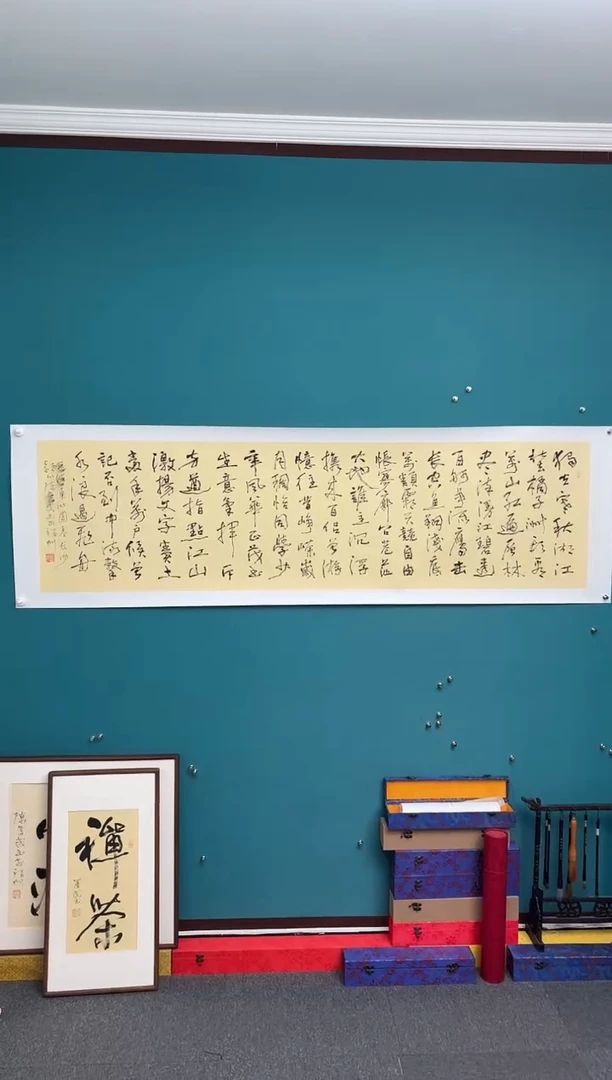 獨立寒秋湘江
北去橘子洲頭看
萬山紅遍層林
盡染漫江碧透
百舸爭流鷹击
長空魚翔淺底
萬類霜天競自由
悵寥廓問蒼茫
大地誰主沉浮
攜來百侶曾游
憶往昔崢嶸歲
月稠恰同學少
年風華正茂書
生意氣揮斥
方遒指點江山
激揚文字糞土
當年萬戶侯曾
記否到中流擊
水浪遏飛舟
禪茶